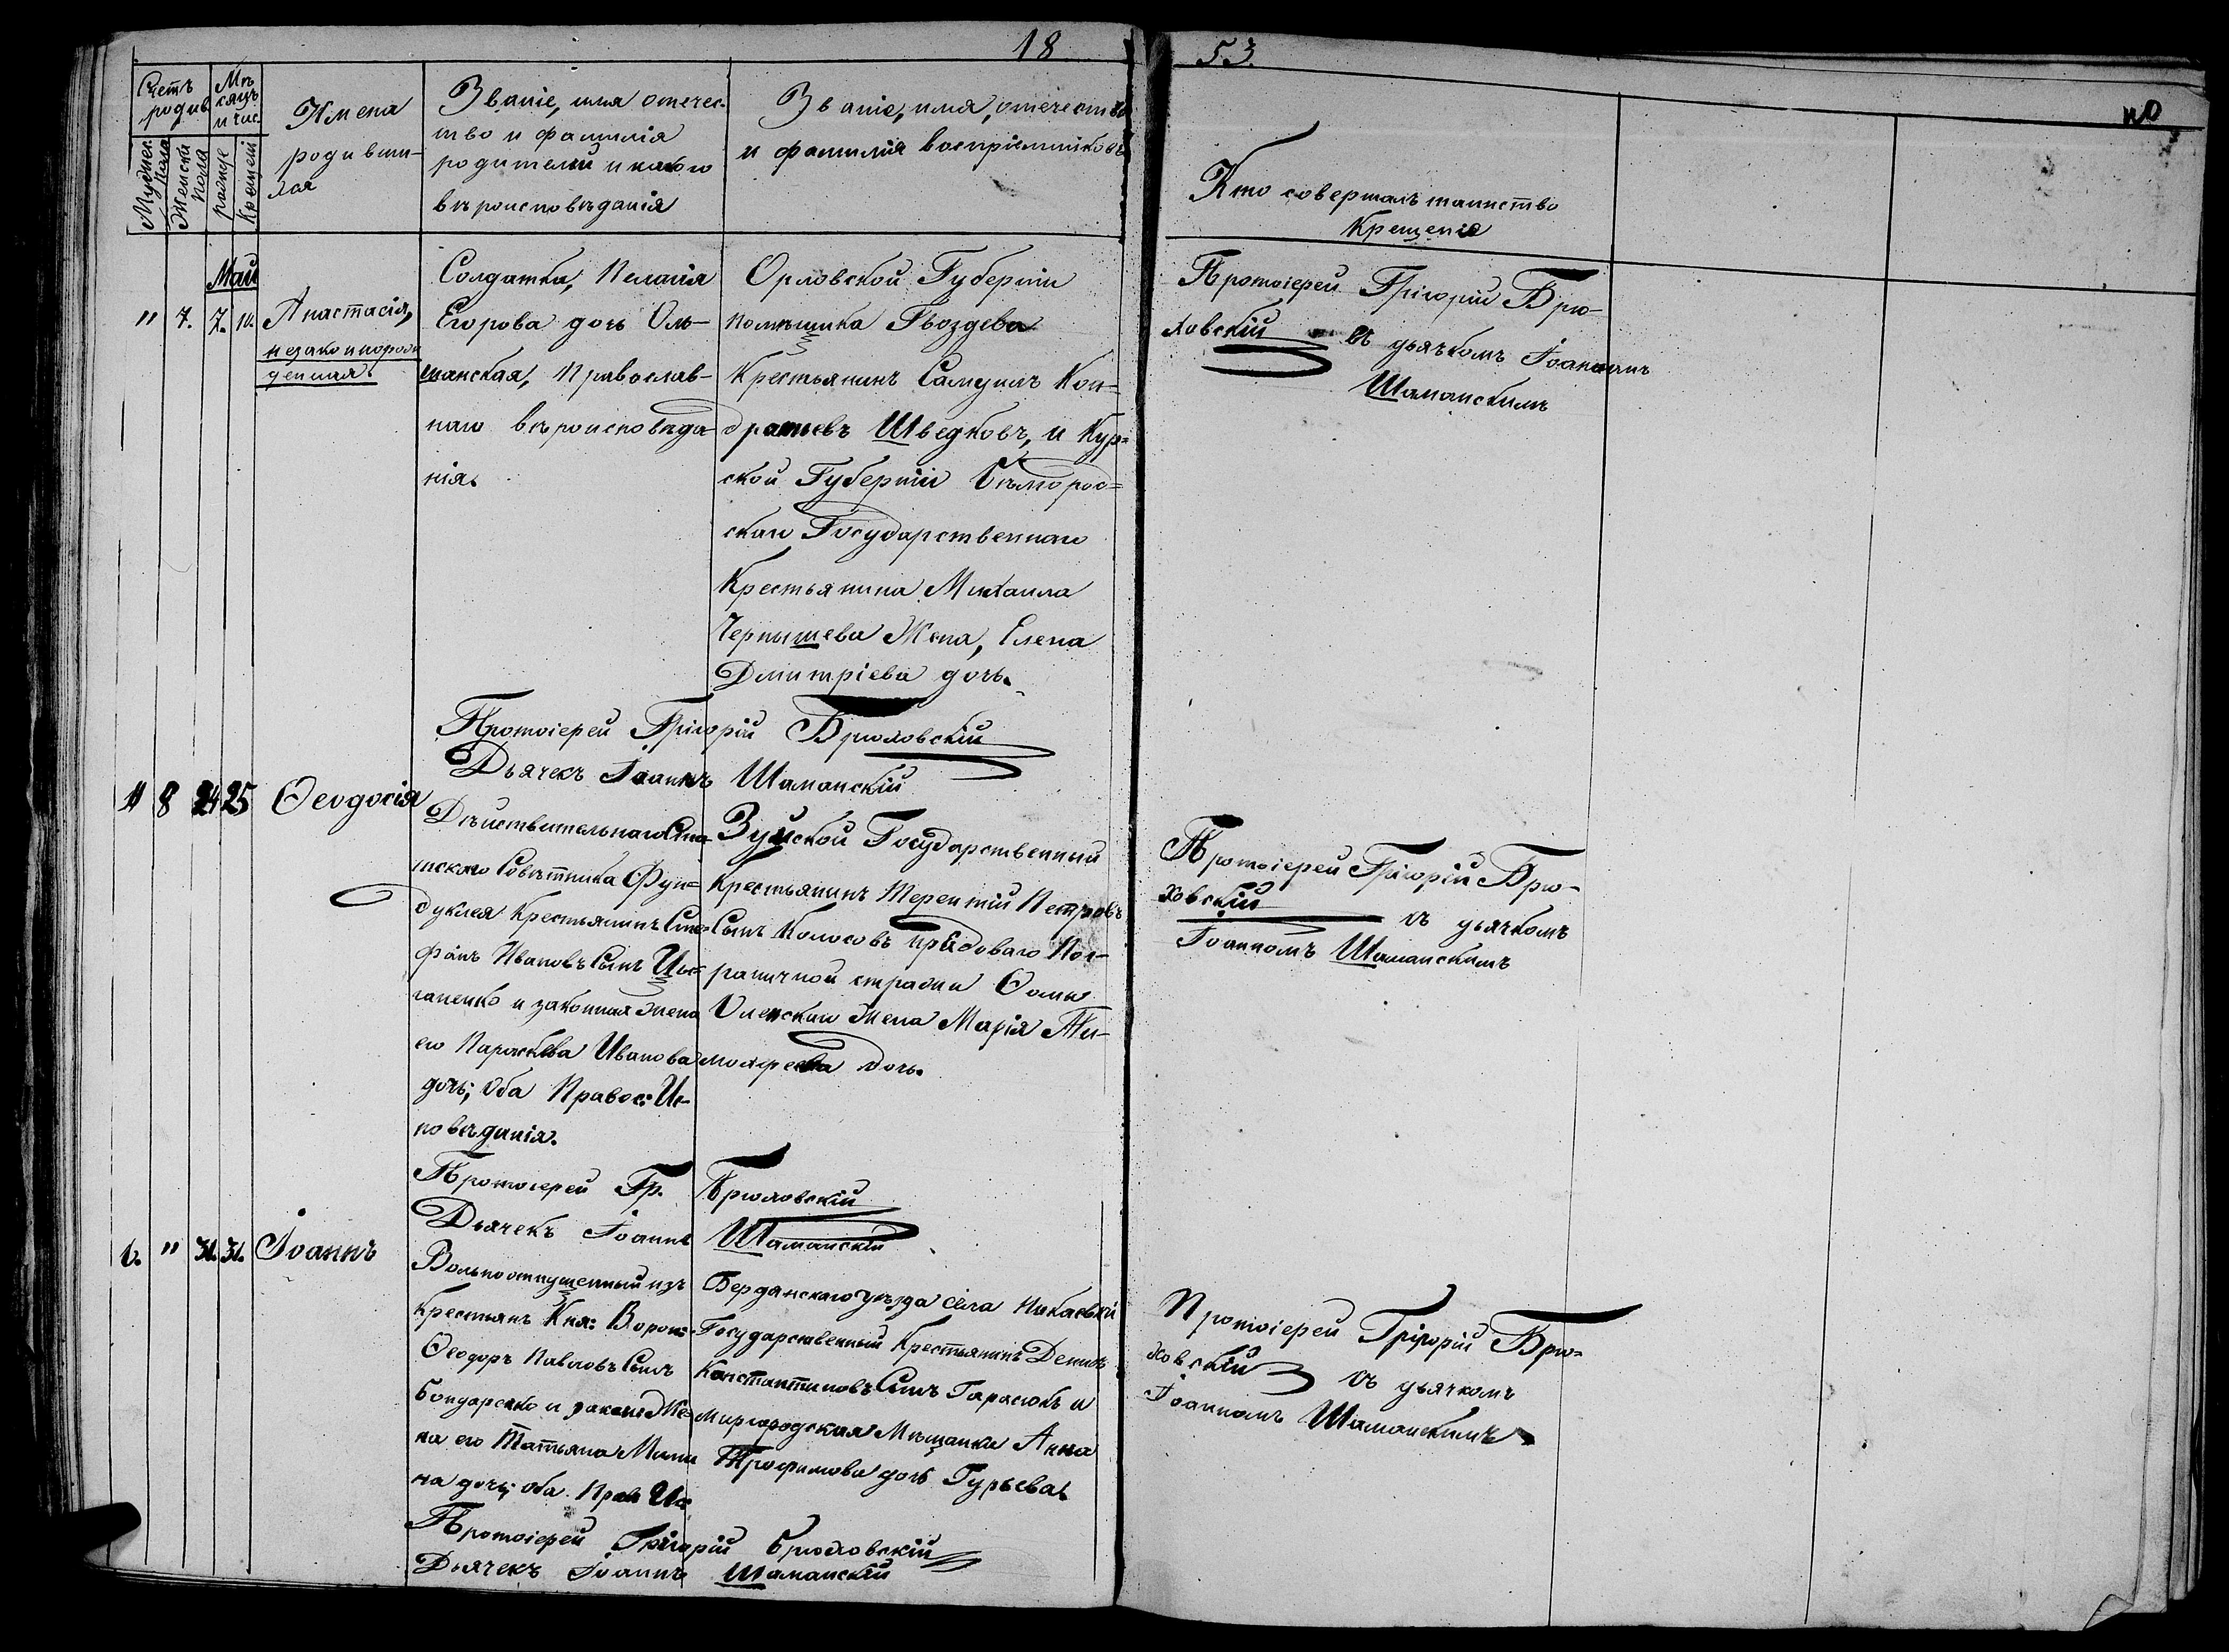 18
53.
Счетъ
родив
Мѣ
сяцъ
и чис.
Мужеск.
пола
Женска
пола
рожде
Крещені
Имена
родивши-
хся
Званіе, имя отчес-
тво и фамилія
родителей и какого
вѣроисповѣданія
Званіе, имя, отечество
и фамилія воспріемниковъ
Кто совершалъ таинство
Крещенія
Май
" 7. 7. 10. Анастасія,
незаконнорож
денная.
Солдатка, Пелагія
Егорова дочь Оль-
шанская, Православ-
наго вѣроисповѣда-
нія.
Орловской Губерніи
помѣщика Гвоздева
Крестьянинъ Самуилъ Кон-
дратиевъ Шведковъ, и Кур=
ской Губерніи Бѣлгород=
скаго Государственнаго
Крестьянина Михаила
Чернышева Жена, Елена
Дмитріева дочь.
Протоіерей Григорій Брю-
ховскій съ дьячкомъ Іоанномъ
Шаманскимъ
Протоіерей Григорій Брюховскій
Дьячекъ Іоаннъ Шаманскій
" 8 24 25 Ѳеодосія
Дѣйствительнаго Ста-
тскаго Совѣтника Фун=
дуклея Крестьянинъ Сте-
фанъ Ивановъ Сынъ Цы-
ганенко и законная жена
его Параскева Иванова
дочь; Оба Правос: Ис-
повѣданія.
Зуйской Государственный
Крестьянинъ Терентій Петровъ
Сынъ Колосовъ и рядоваго Пог-
раничной стражи Ѳомы
жена Марія Ти-
моѳеева дочь.
Протоіерей Григорій Брю-
ховскій съ дьячкомъ
Іоанномъ Шаманскимъ
Протоіерей Гр. Брюховскій
Дьячекъ Іоаннъ Шаманскій
6. " 31. 31. Іоаннъ
Вольноотпущенный изъ
Крестьянъ Кня: Ворон:
Ѳеодоръ Павловъ Сынъ
Бондаренко и закон Же=
на его Татьяна Мин
на дочь; оба Прав Ис:
Бердянскаго уѣзда села
Государственный Крестьянинъ Денисъ
Константиновъ Сынъ Гарасюкъ и
Миргородская Мѣщанка Анна
Трофимова дочь Гурьева.
Протоіерей Григорій Брю=
ховскій съ дьячкомъ
Іоанномъ Шаманскимъ
Протоіерей Григорій Брюховскій
Дьячекъ Іоаннъ Шаманскій